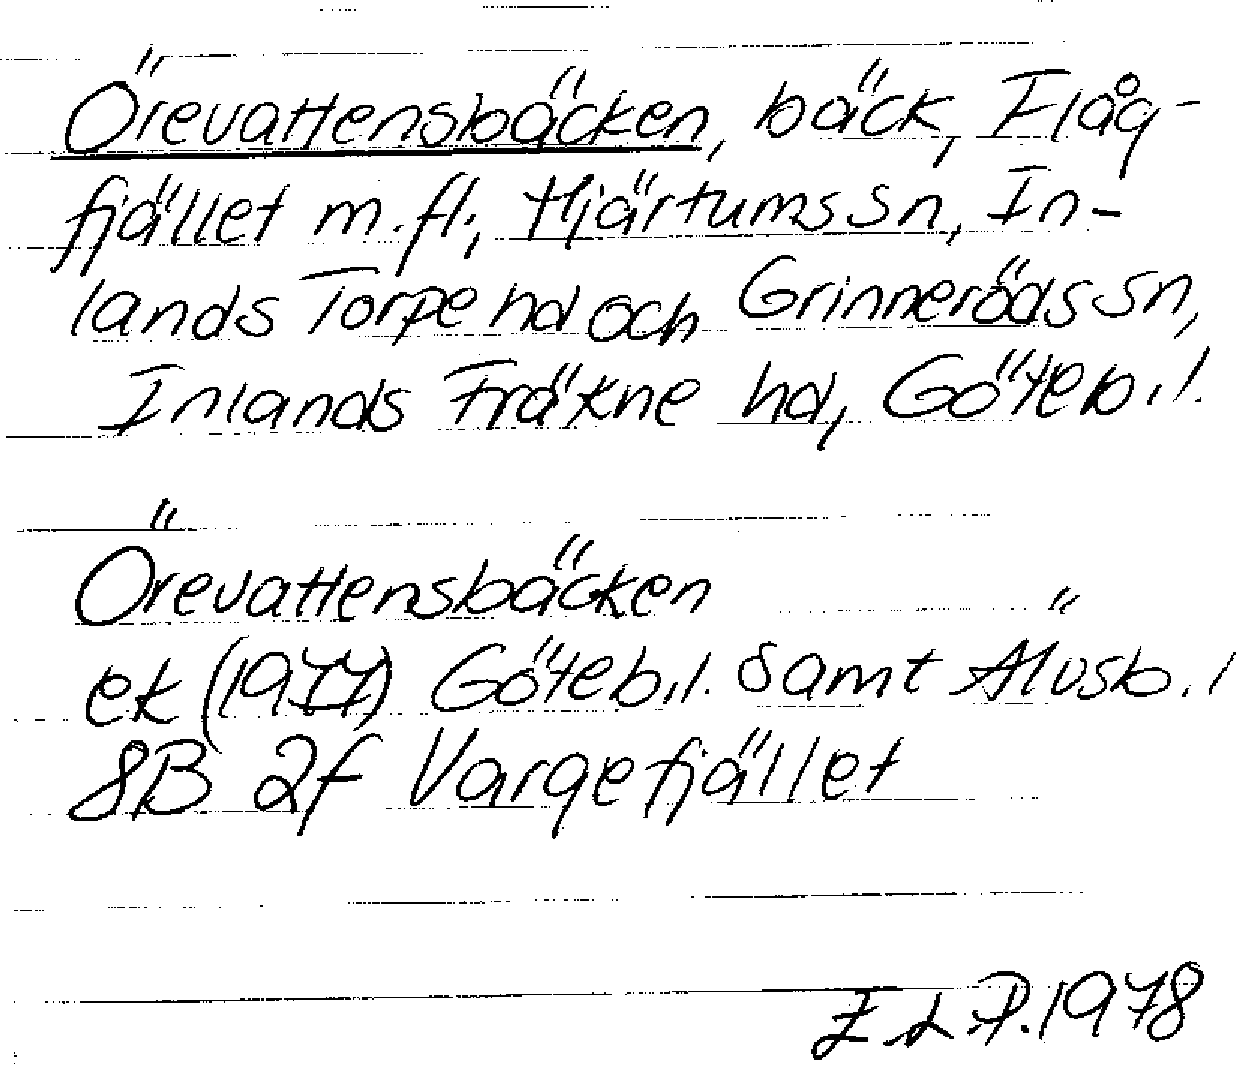 Örevattensbäcken, bäck, Flåg-
fjället m.fl., Hjärtums sn, In-
lands Torpe hd och Grinneröds sn,
Inlands Fräkne hd, Göteb.l.
Örevattensbäcken
ek (1977) Göteb.l. samt Älvsb.l
8B 2f Vargefjället
E.L.P. 1978